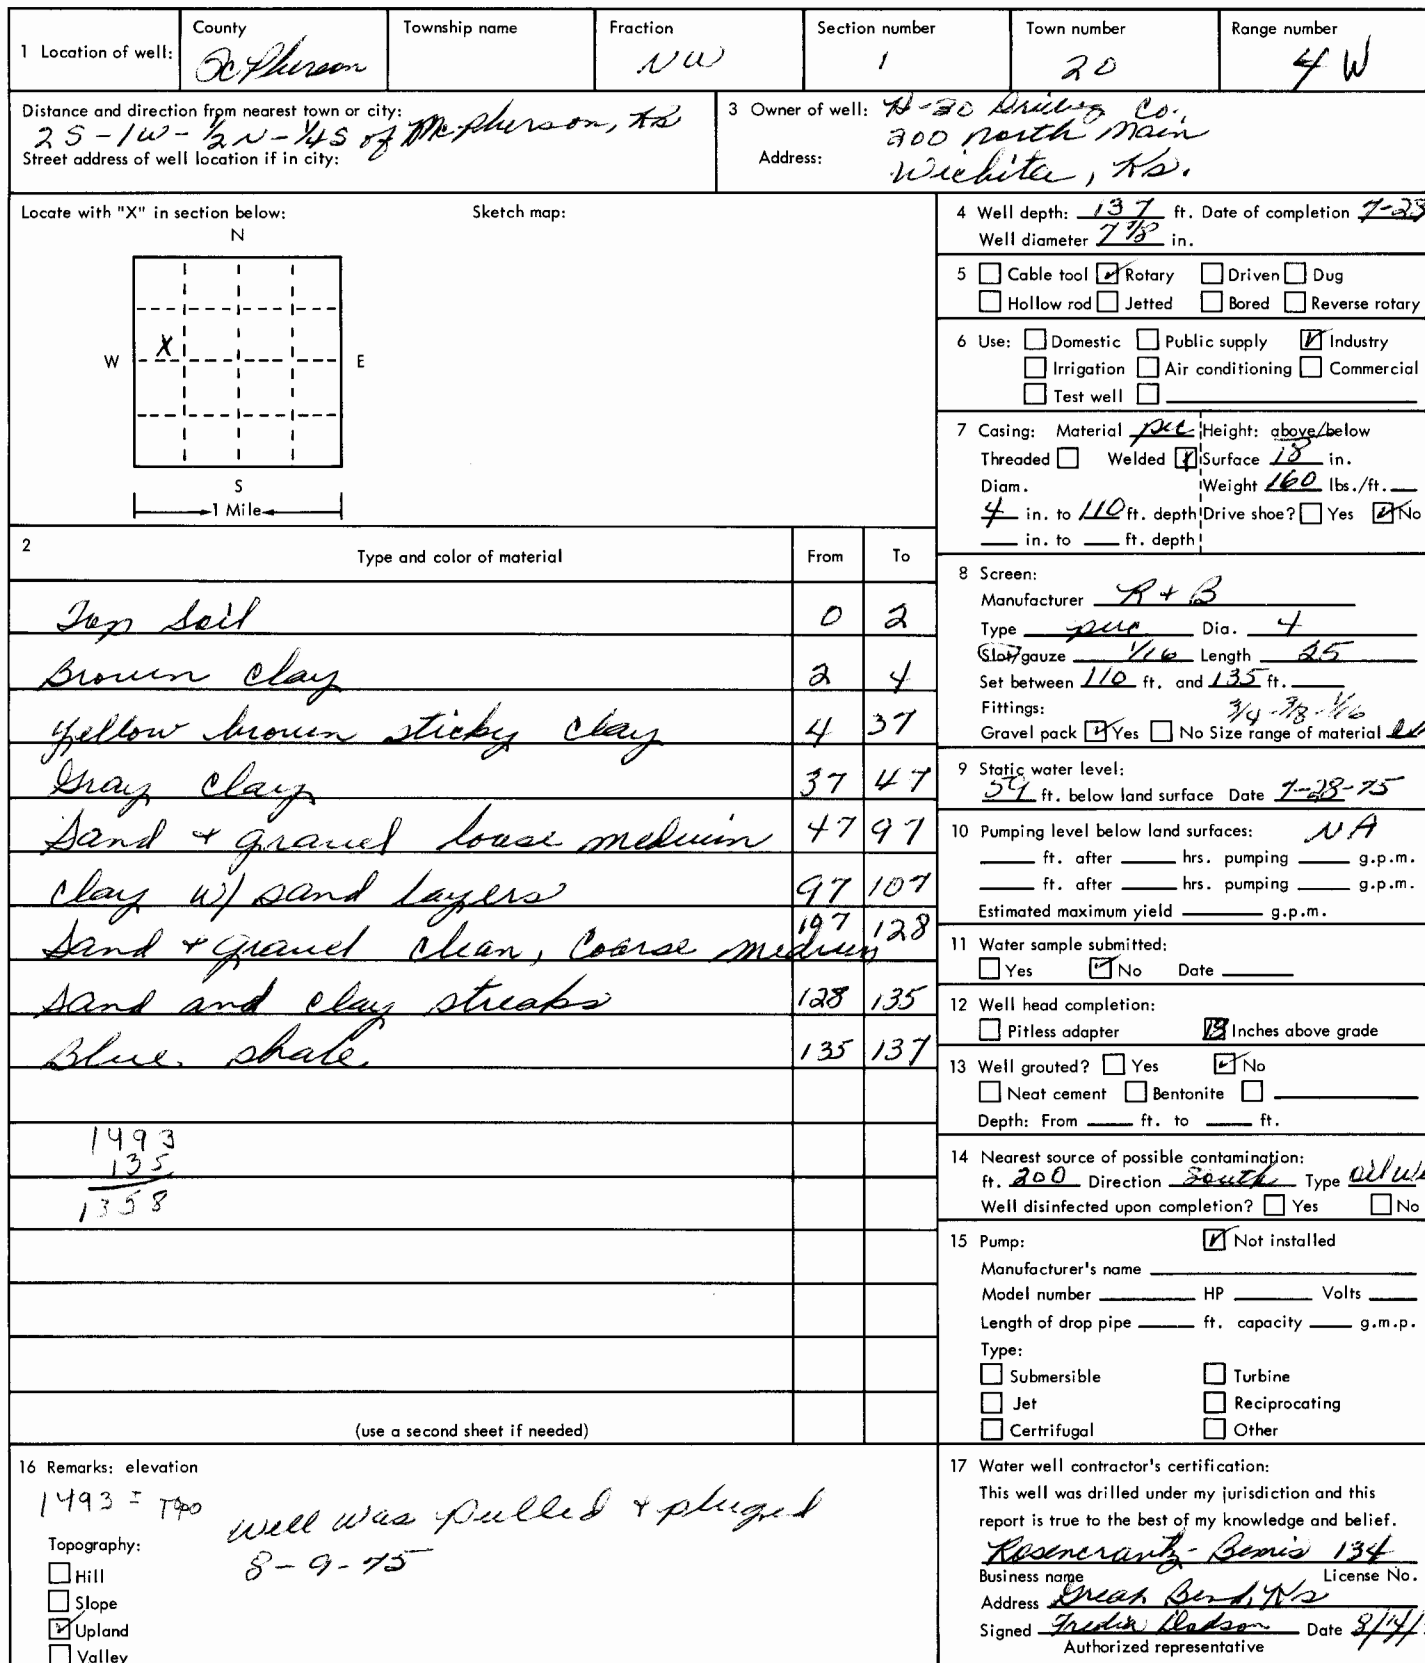 1 Location of well:
County
McPherson
Township name
Fraction
NW
Section number
1
Town number
20
Range number
4 W
Distance and direction from nearest town or city:
2S-1W-½N-¼S of McPherson, Ks
Street address of well location if in city:
3 Owner of well: H-30 Drilling Co.
Address: 200 North Main
Wichita, Ks.
Locate with "X" in section below: Sketch map:
N
X
W E
S
1 Mile
2 Type and color of material From To
Top Soil 0 2
Brown clay 2 4
yellow brown sticky clay 4 37
Gray clay 37 47
Sand + gravel loose medium 47 97
Clay w/ sand layers 97 107
Sand + gravel clean, coarse medium 107 128
Sand and clay streaks 128 135
Blue shale 135 137
1493
135
1358
(use a second sheet if needed)
4 Well depth: 137 ft. Date of completion 7-28
Well diameter 7 7/8 in.
5 Cable tool Rotary Driven Dug
Hollow rod Jetted Bored Reverse rotary
6 Use: Domestic Public supply Industry
Irrigation Air conditioning Commercial
Test well
7 Casing: Material pvc Height: above/below
Threaded Welded Surface 18 in.
Diam. Weight 160 lbs./ft.
4 in. to 110 ft. depth Drive shoe? Yes No
in. to ft. depth
8 Screen:
Manufacturer R + B
Type pvc Dia. 4
Slot/gauze 1/16 Length 25
Set between 110 ft. and 135 ft.
Fittings: 3/4-3/8-1/16
Gravel pack Yes No Size range of material
9 Static water level:
59 ft. below land surface Date 7-28-75
10 Pumping level below land surfaces: NA
ft. after hrs. pumping g.p.m.
ft. after hrs. pumping g.p.m.
Estimated maximum yield g.p.m.
11 Water sample submitted:
Yes No Date
12 Well head completion:
Pitless adapter 18 Inches above grade
13 Well grouted? Yes No
Neat cement Bentonite
Depth: From ft. to ft.
14 Nearest source of possible contamination:
ft. 200 Direction South Type oil we
Well disinfected upon completion? Yes No
15 Pump: Not installed
Manufacturer's name
Model number HP Volts
Length of drop pipe ft. capacity g.m.p.
Type:
Submersible Turbine
Jet Reciprocating
Certrifugal Other
16 Remarks: elevation
1493 = Topo
Well was pulled + pluged
8-9-75
Topography:
Hill
Slope
Upland
Valley
17 Water well contractor's certification:
This well was drilled under my jurisdiction and this
report is true to the best of my knowledge and belief.
Rosencrantz-Bemis 134
Business name License No.
Address Great Bend, Ks
Signed Fredia Dodson Date 8/14/
Authorized representative